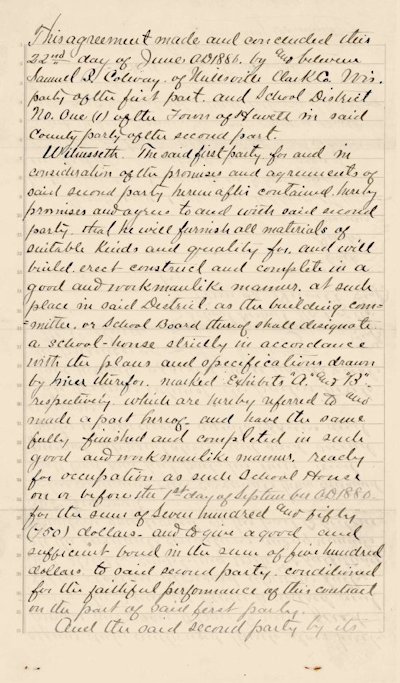 This agreement made and concluded this
22nd day of June AD 1880. by and between
Samuel B. Colway. of Neillsville Clark Co. Wis.
party of the first part. and School District
No. One (1) of the Town of Hewett in said
County party of the second part.
Witnesseth. The said first party for and in
consideration of the promises and agreements of
said second party hereinafter contained. hereby
promises and agrees to and with said second
party. that he will furnish all materials of
suitable kinds and quality for, and will
build. erect construct and complete in a
good and workmanlike manner. at such
place in said District. as the building com-
=mittee. or School Board thereof shall designate
a school-house strictly in accordance
with the plans and specifications drawn
by him therefor. marked Exhibits "A." and "B"
respectively. which are hereby referred to and
made a part hereof. and have the same
fully finished and completed in such
good and workmanlike manner. ready
for occupation as such School House
on or before the 1st day of September AD 1880.
for the sum of Seven hundred and fifty
(750) dollars. and to give a good and
sufficient bond in the sum of five hundred
dollars to said second party. conditioned
for the faithful performance of this contract
on the part of said first party.
And the said second party by its